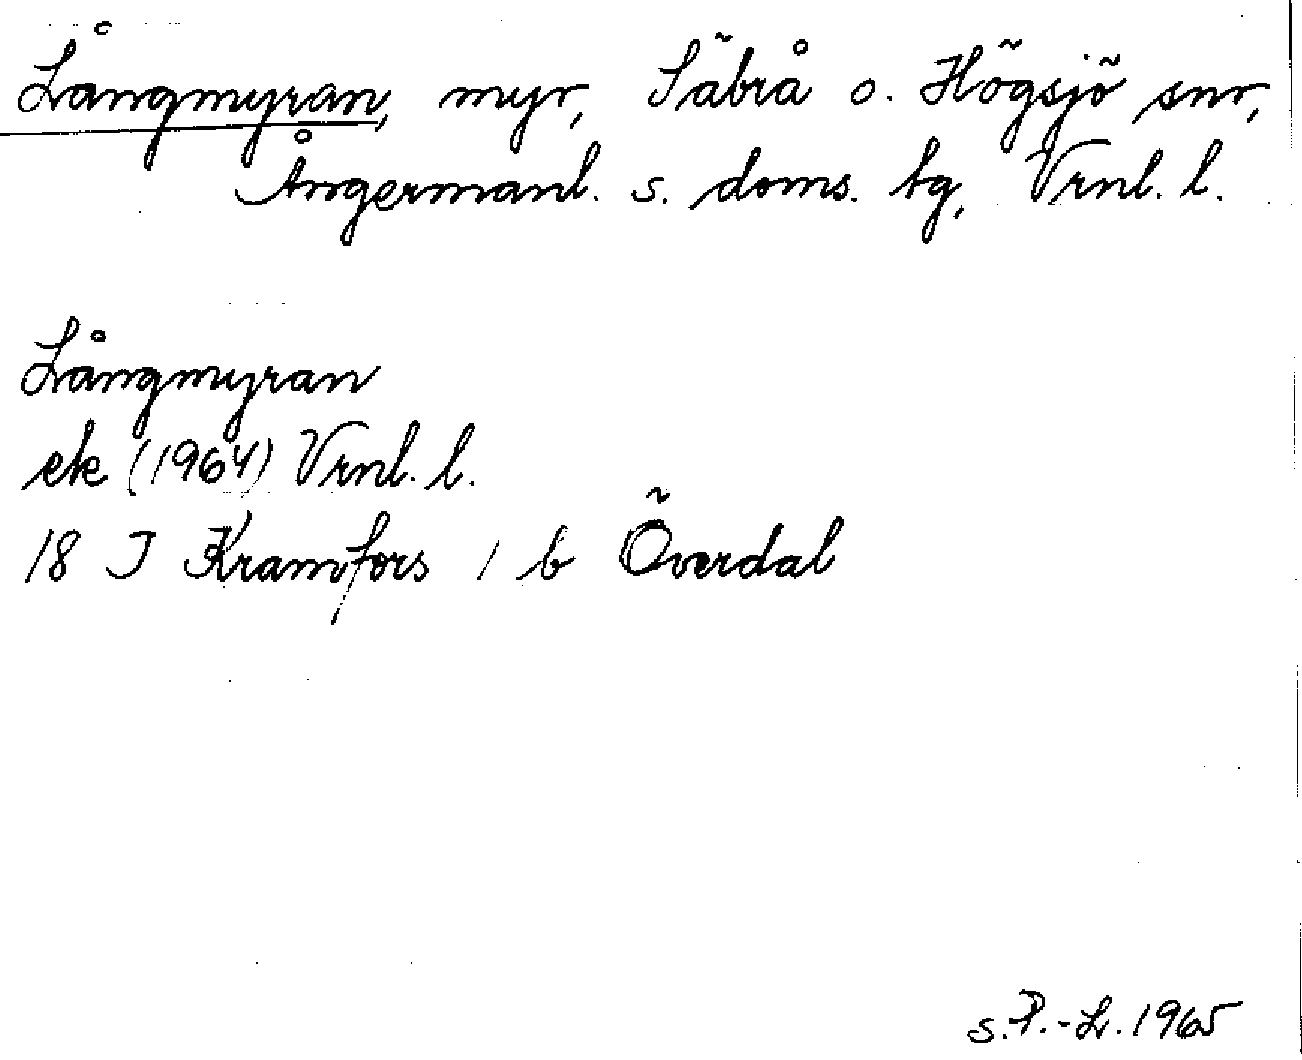 Långmyran, myr, Säbrå o. Högsjö snr,
Ångermanl. s. doms. tg, Vrnl. l.
Långmyran
ek (1964) Vrnl. l.
18 I Kramfors 1 b Överdal
s. P.-L. 1965